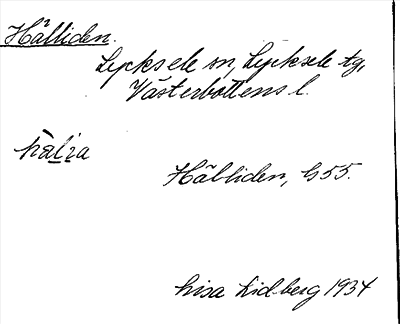 Hälliden.
Lycksele sn, Lycksele tg,
Västerbottens l.
Hälliden, h 55.
Lisa Lidberg 1934